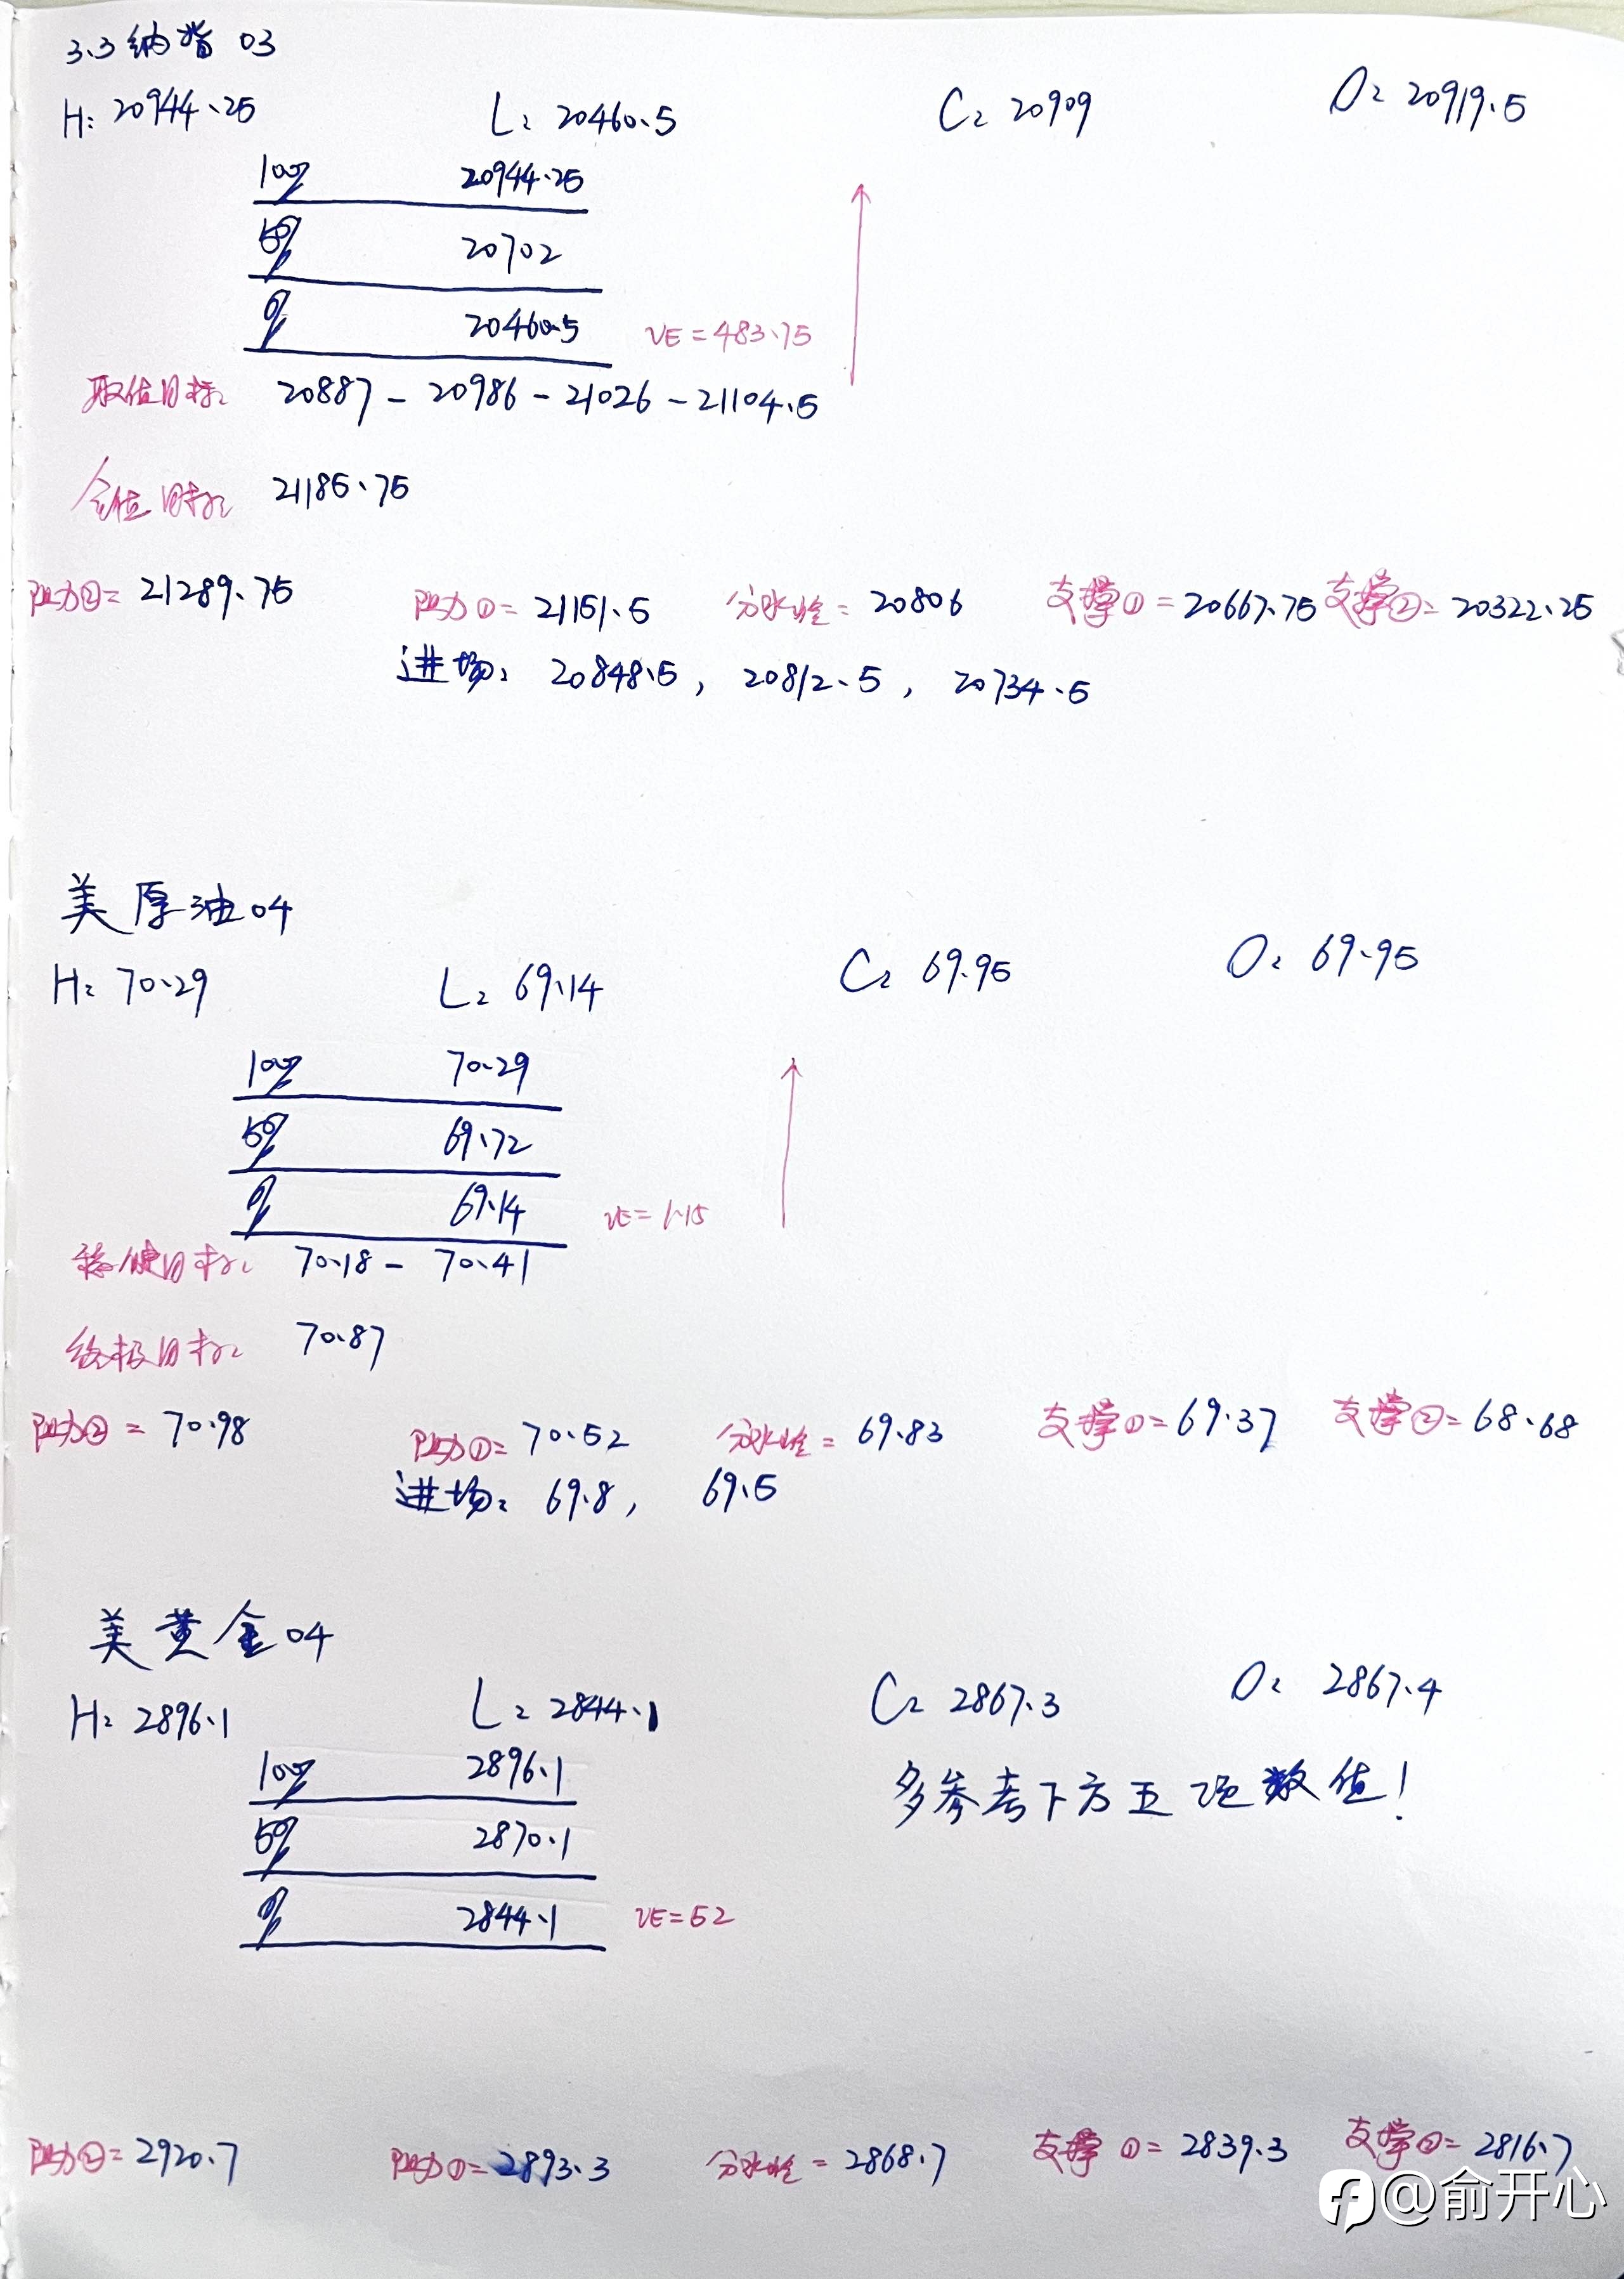 3.3纳指 03
H: 20944.25 L: 20460.5 C: 20909 O: 20919.5
100% 20944.25
50% 20702
0% 20460.5 VE=483.75
取值目标: 20887 - 20986 - 21026 - 21104.5
目标: 21185.75
阻力②= 21289.75 阻力①= 21151.5 分水岭= 20806 支撑①= 20667.75 支撑②= 20322.25
进场: 20848.5, 20812.5, 20734.5
美原油04
H: 70.29 L: 69.14 C: 69.95 O: 69.95
100% 70.29
50% 69.72
0% 69.14 VE=1.15
稳健目标: 70.18 - 70.41
终极目标: 70.87
阻力②= 70.98 阻力①= 70.52 分水岭= 69.83 支撑①= 69.37 支撑②= 68.68
进场: 69.8, 69.5
美黄金04
H: 2896.1 L: 2844.1 C: 2867.3 O: 2867.4
100% 2896.1
多参考下方五项数值!
50% 2870.1
0% 2844.1 VE=52
阻力②= 2920.7 阻力①= 2893.3 分水岭= 2868.7 支撑①= 2839.3 支撑②= 2816.7
@俞开心